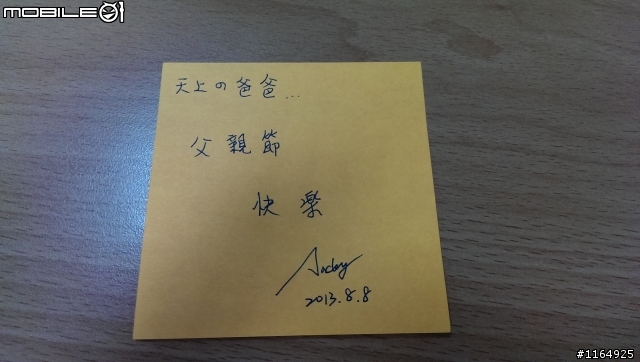 MOBILE01
天上の爸爸...
父親節
快樂
Andy
2013.8.8
#1164925